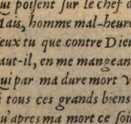 ui poisent sur le chef d
Mais, homme mal-heure
eux tu que contre Dieu
aut-il, en me mangean
ui par ma dure mort v
i tous ces grands biens
u'apres ma mort ce son